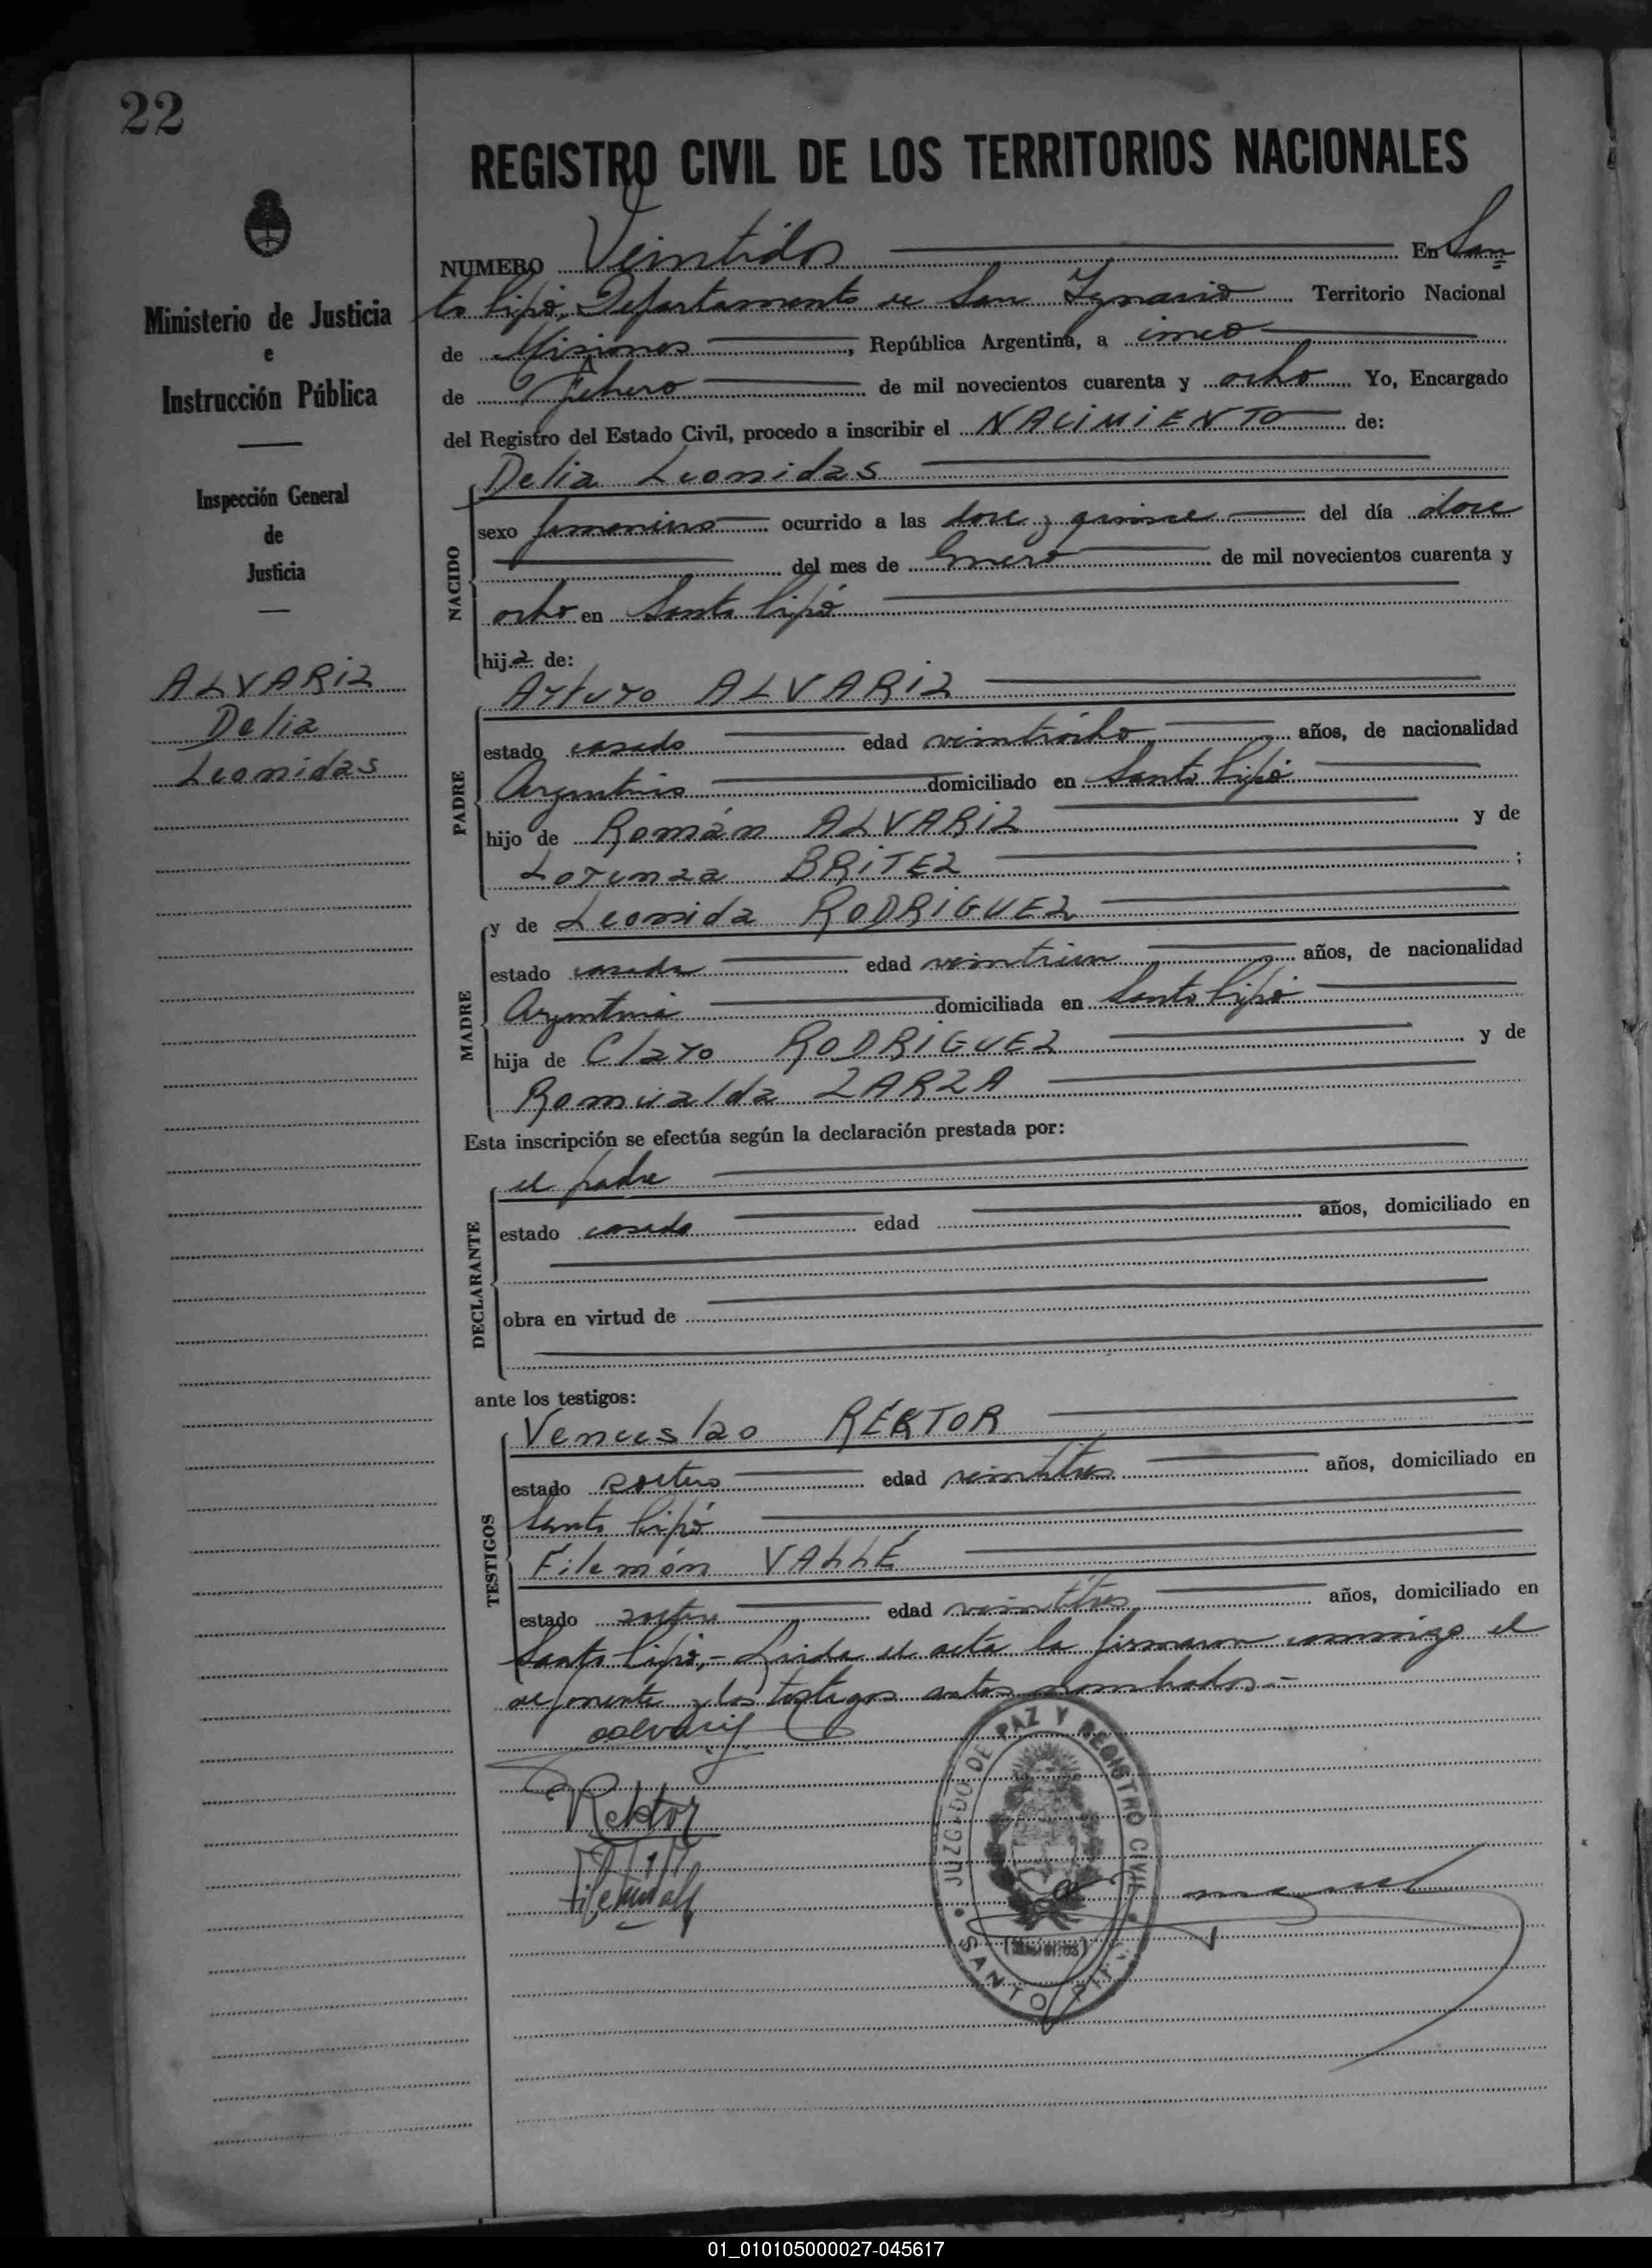 22
REGISTRO CIVIL DE LOS TERRITORIOS NACIONALES
Ministerio de Justicia
e
Instrucción Pública
Inspección General
de
Justicia
ALVARIZ
Delia
Leonidas
NUMERO Veintidos En San
to Pipó, Departamento de San Ignacio Territorio Nacional
de Misiones, República Argentina, a cinco
de Febrero de mil novecientos cuarenta y ocho Yo, Encargado
del Registro del Estado Civil, procedo a inscribir el NACIMIENTO de:
NACIDO
Delia Leonidas
sexo femenino ocurrido a las doce y quince del día doce
del mes de Enero de mil novecientos cuarenta y
ocho en Santo Pipó
hija de:
PADRE
Arturo ALVARIZ
estado casado edad veintiocho años, de nacionalidad
Argentino domiciliado en Santo Pipó
hijo de Román ALVARIZ y de
Lorenza BRITEZ ;
MADRE
y de Leonida RODRIGUEZ
estado casada edad veintiun años, de nacionalidad
Argentina domiciliada en Santo Pipó
hija de Claro RODRIGUEZ y de
Romualda ZARZA
Esta inscripción se efectúa según la declaración prestada por:
DECLARANTE
el padre
estado casado edad años, domiciliado en
obra en virtud de
ante los testigos:
TESTIGOS
Venceslao REKTOR
estado soltero edad veintitres años, domiciliado en
Santo Pipó
Filemón VALLE
estado soltero edad veintitres años, domiciliado en
Santo Pipó,- Leida el acta la firmaron conmigo el
exponente y los testigos antes nombrados.-
Rektor
JUZGADO DE PAZ Y REGISTRO CIVIL
(Misiones)
SANTO PIPÓ
01_010105000027-045617